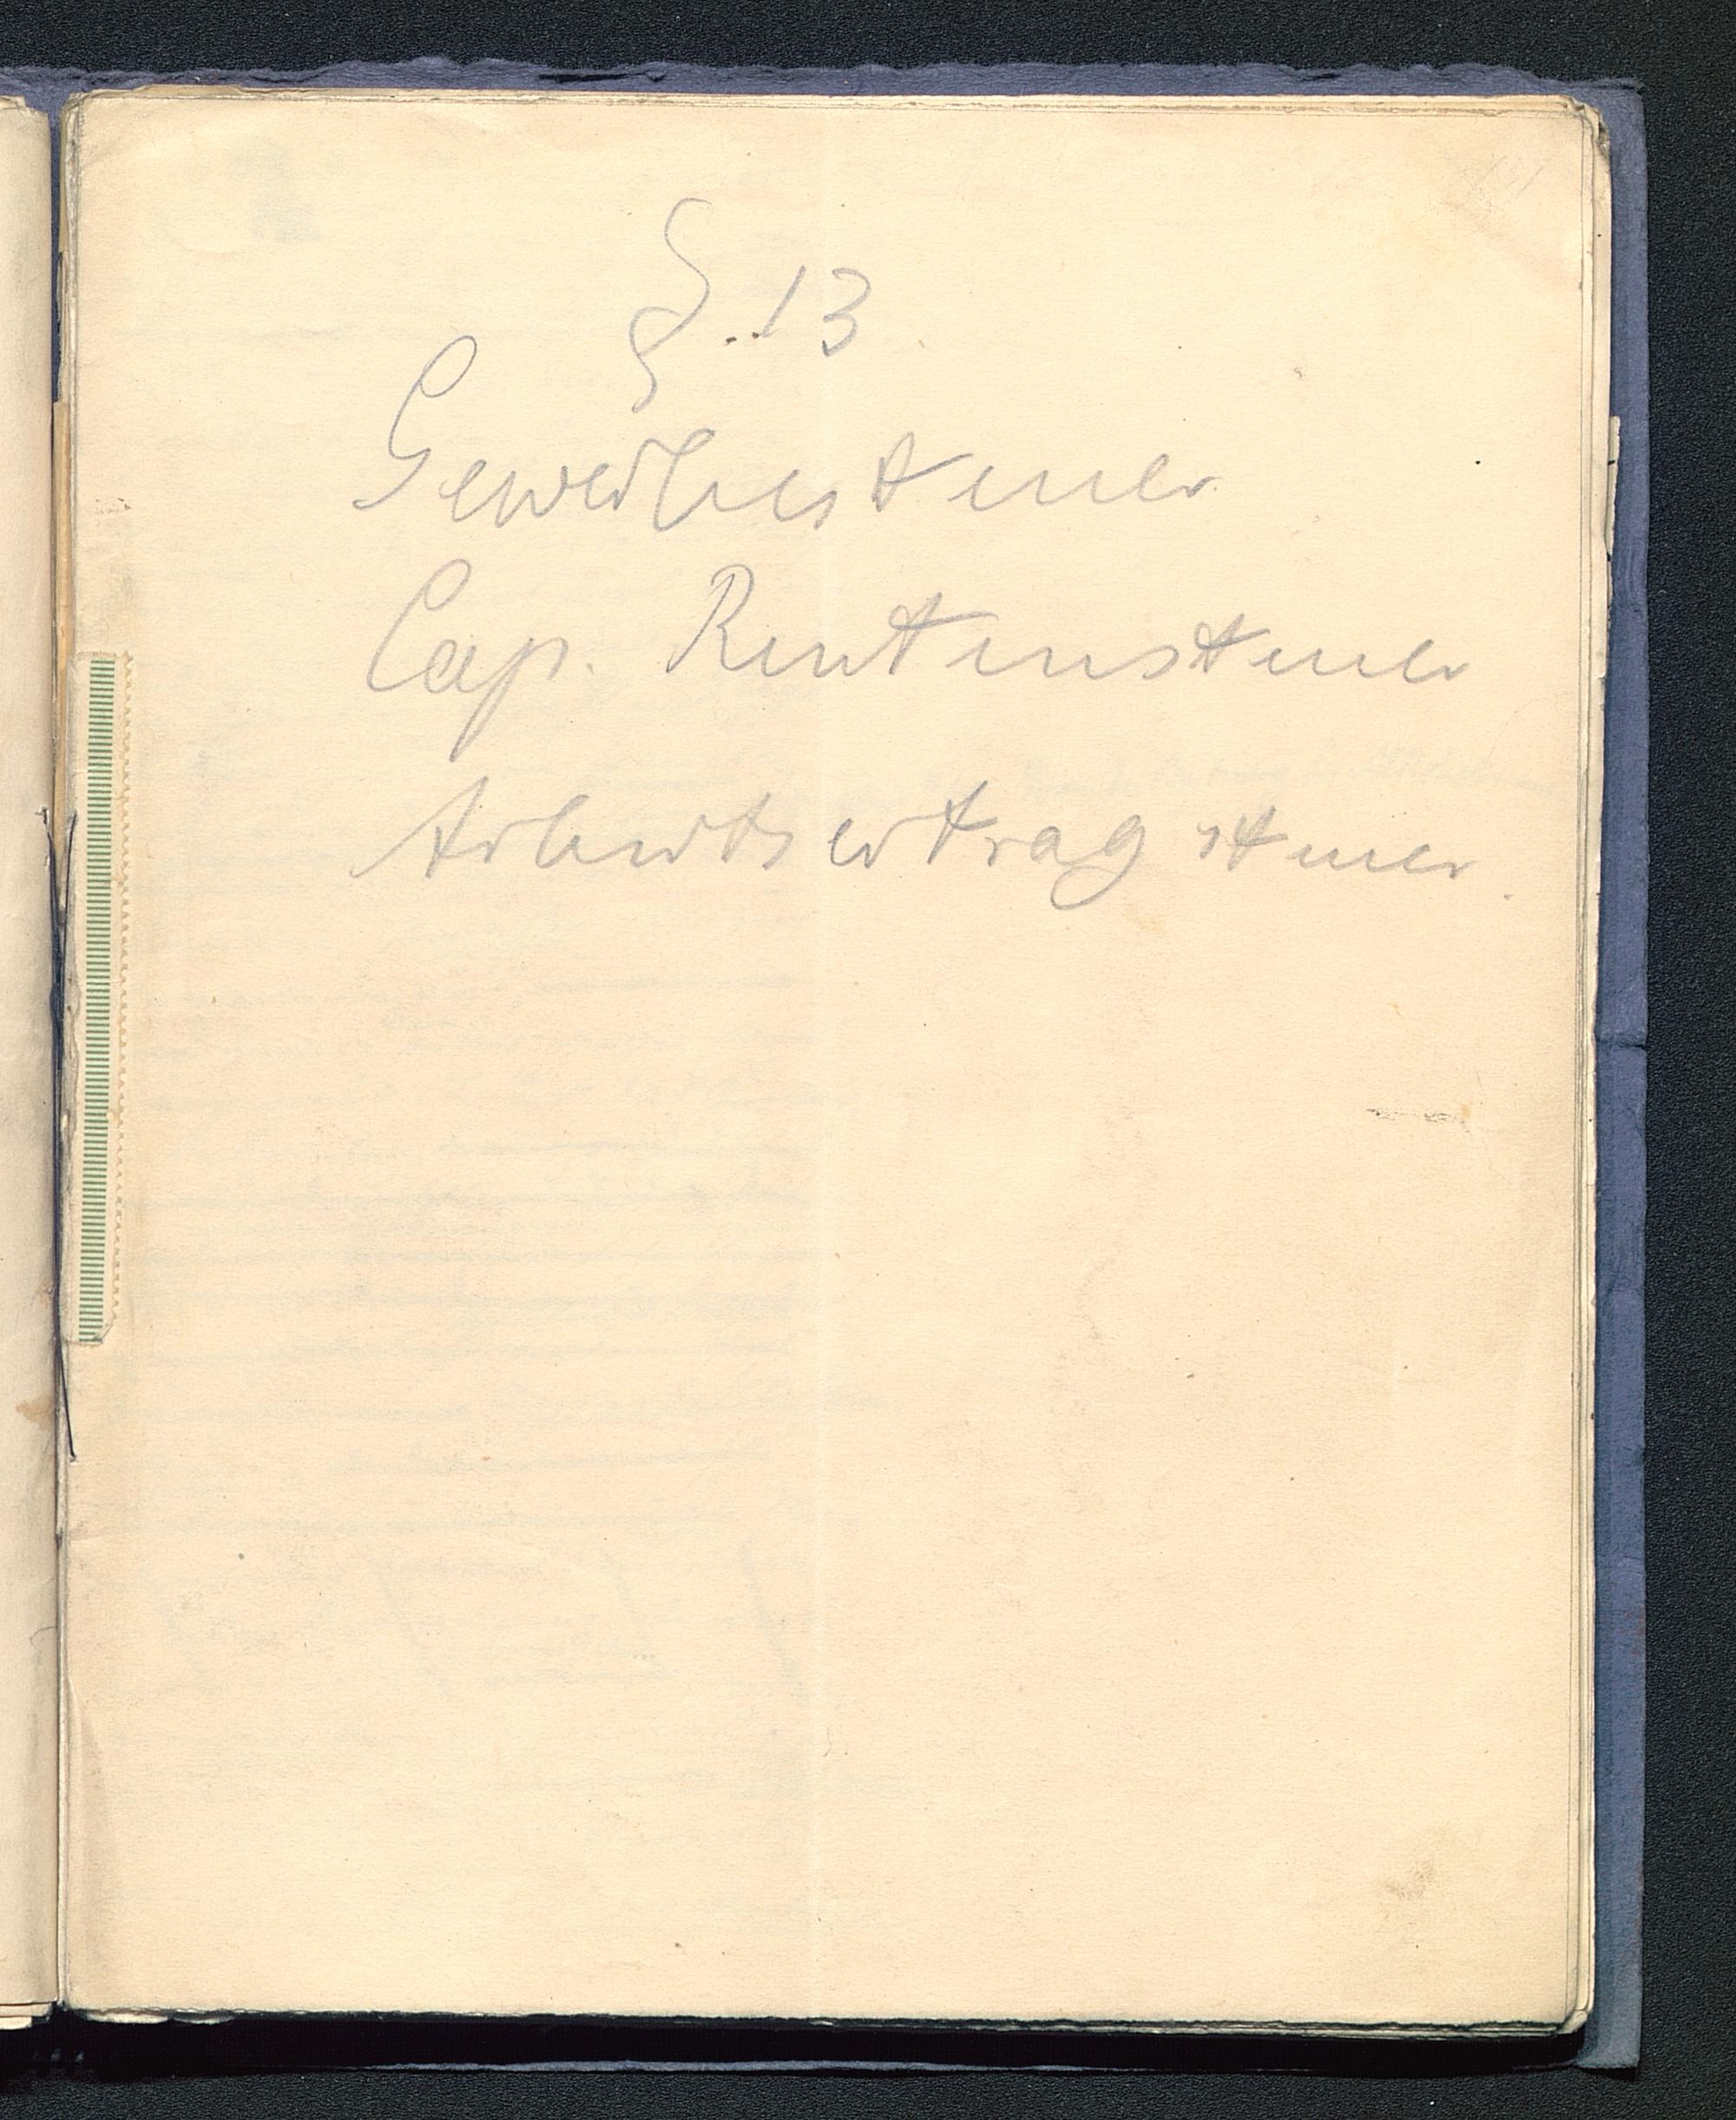 §. 13
Gewerbesteuer
Cap. Rentensteuer
Arbeitsertragsteuer